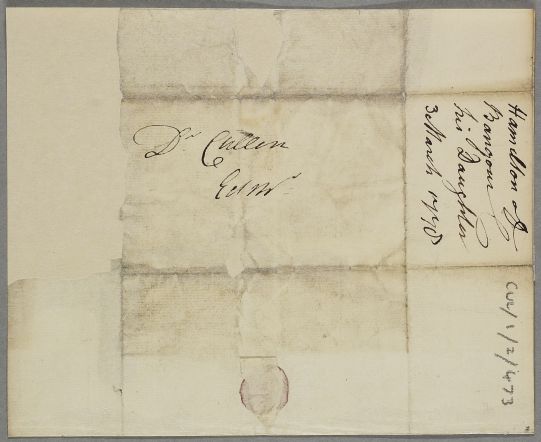 Dr Cullen
Edinr
Hamilton of
Bangour
his Daughter
3 March 1778
CUL/1/2/473